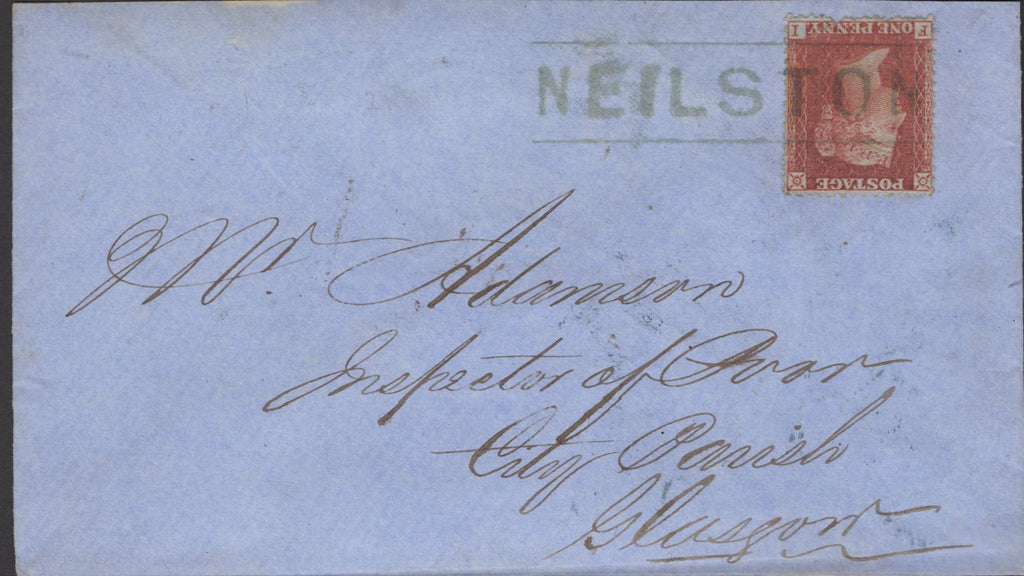 NEILSTON
F ONE PENNY I
POSTAGE
Mr. Adamson
Inspector of Poor
City Parish
Glasgow